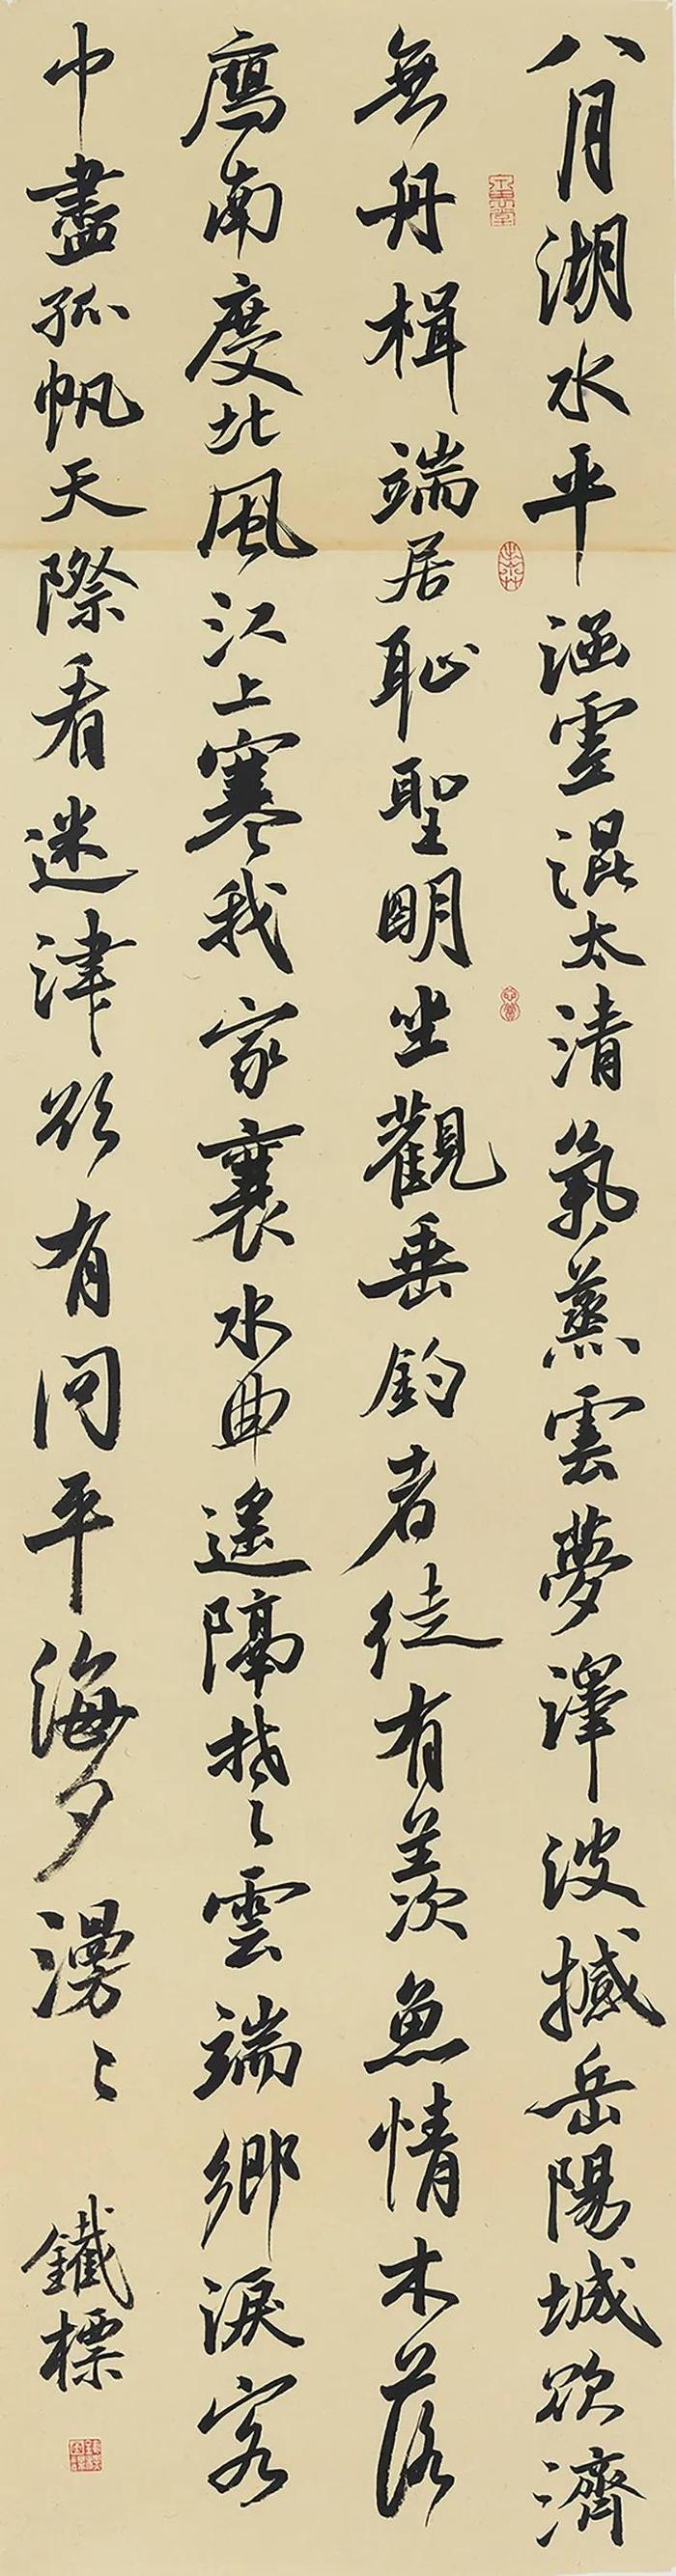 八月湖水平涵虛混太清氣蒸雲夢澤波撼岳陽城欲濟
無舟楫端居恥聖明坐觀垂釣者徒有羨魚情木落
鴈南度北風江上寒我家襄水曲遙隔楚雲端鄉淚客
中盡孤帆天際看迷津欲有問平海夕漫〻
鐵標